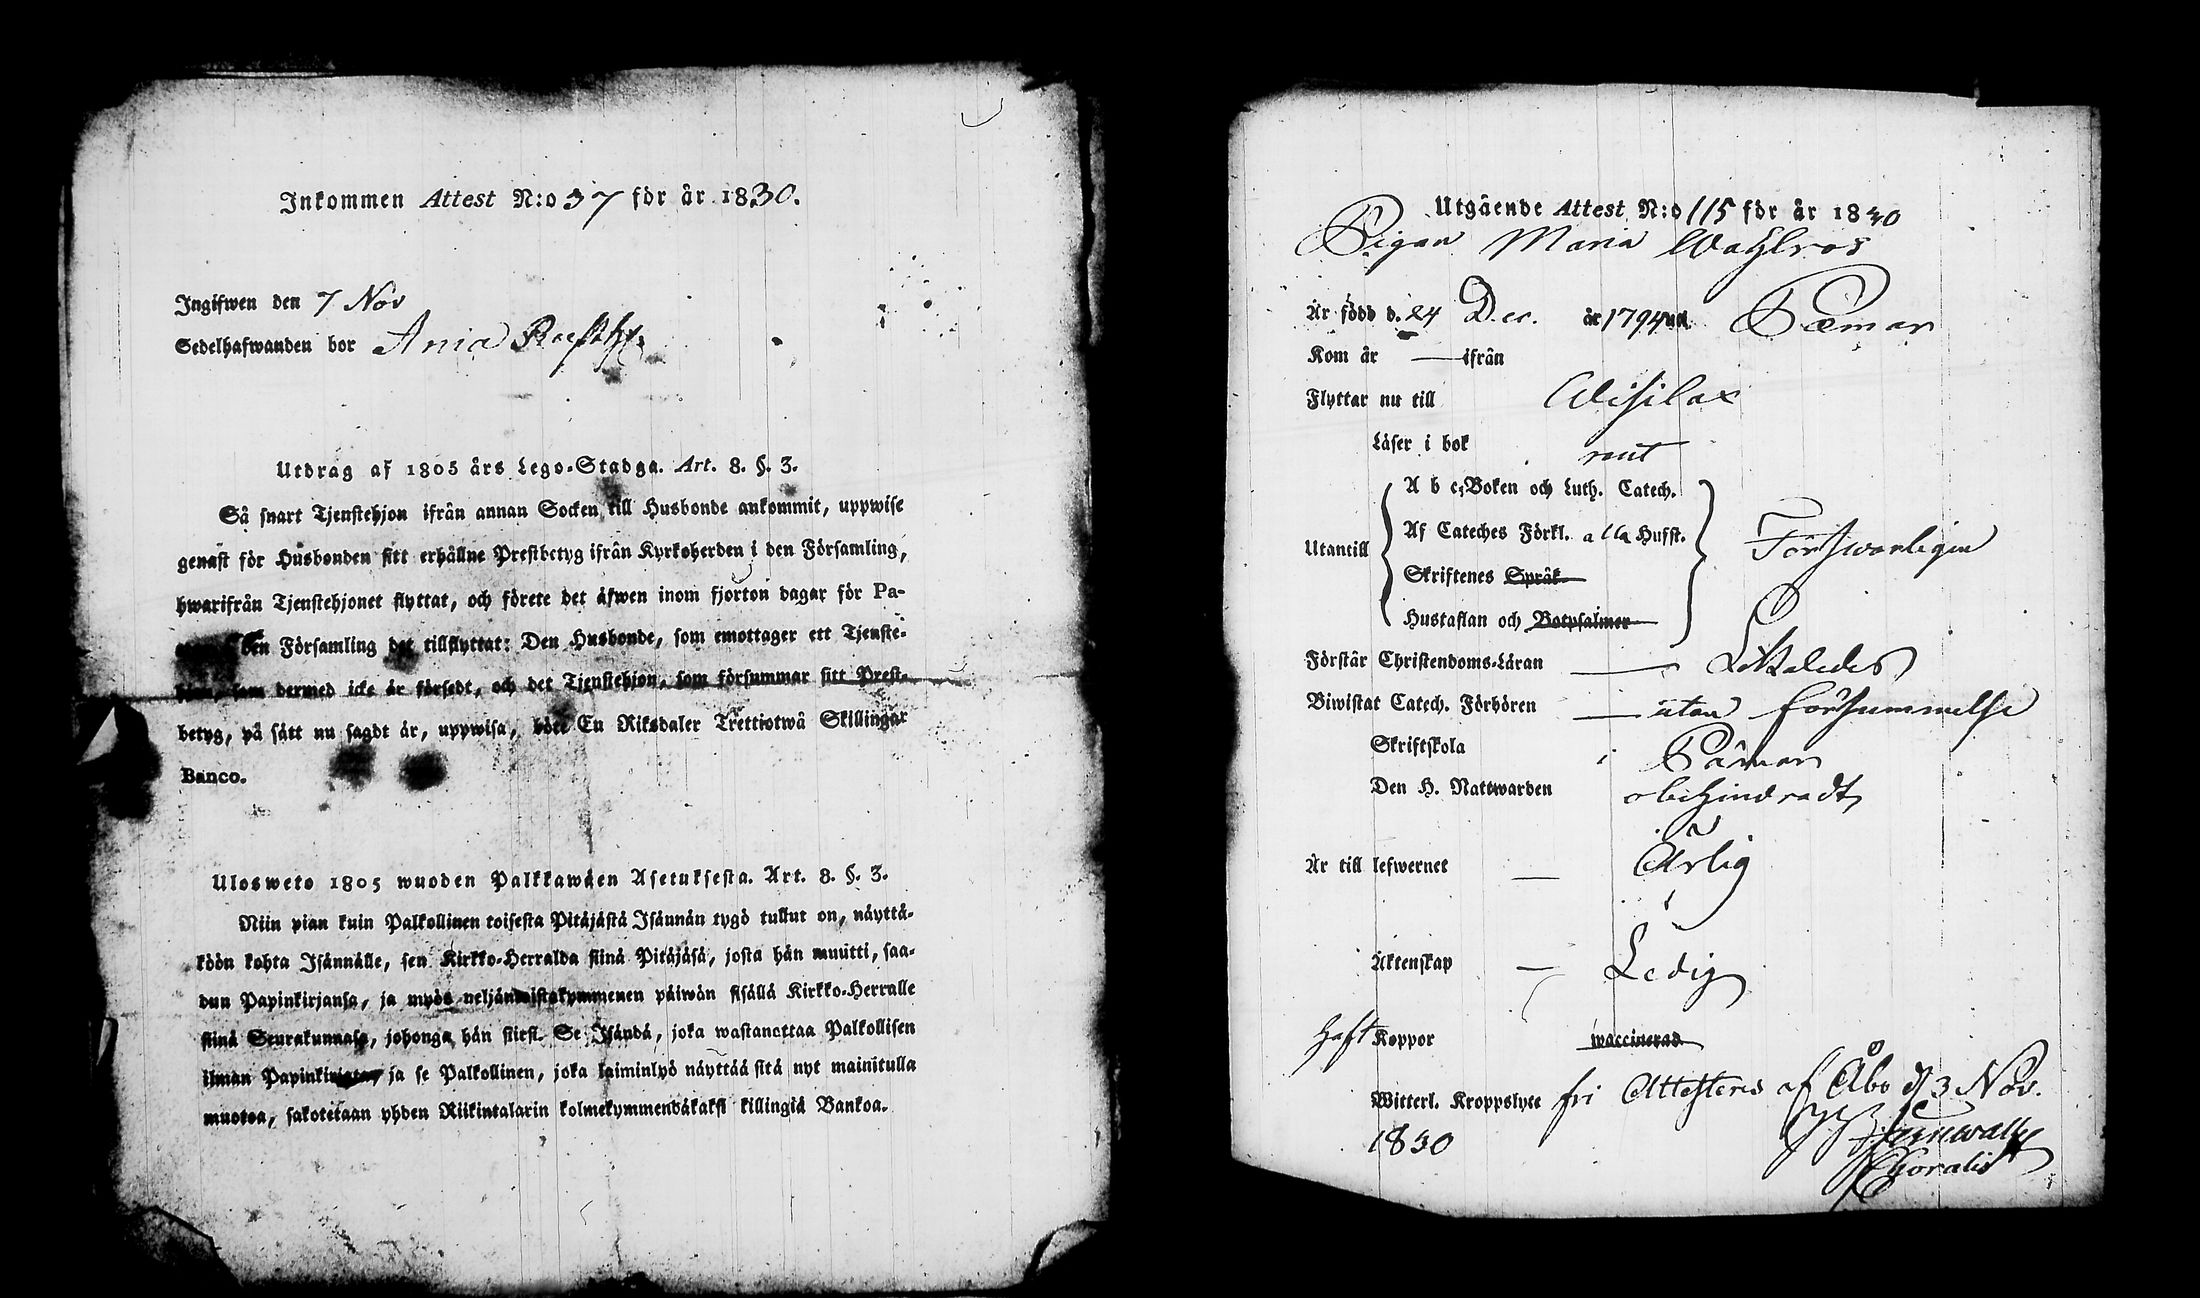 Inkommen Attest N:o 37 för år 1830.
Ingifwen den 7 Nov
Sedelhafwanden bor
Utdrag af 1805 års Lego-Stadga. Art. 8. §. 3.
Så snart Tjenstehjon ifrån annan Socken till Husbonde ankommit, uppwise
genast för Husbonden sitt erhållne Prestbetyg ifrån Kyrkoherden i den Församling,
hwarifrån Tjenstehjonet flyttat, och förete det äfwen inom fjorton dagar för Pa-
den Församling det tillflyttat: Den Husbonde, som emottager ett Tjenste-
som dermed icke är försedt, och det Tjenstehjon, som försummar sitt Prest-
betyg, på sätt nu sagdt är, uppwisa, böte En Riksdaler Trettiotwå Skillingar
Banco.
Ulosweto 1805 wuoden Palkkawäen Asetuksesta. Art. 8. §. 3.
Niin pian kuin Palkollinen toisesta Pitäjästä Isännän tygö tullut on, näyttä-
köön kohta Isännälle, sen Kirkko-Herralda siinä Pitäjäsä, josta hän muutti, saa-
dun Papinkirjansa, ja myös neljännistakymmenen päiwän sisällä Kirkko-Herralle
siinä Seurakunnasa, johonga hän siirsi. Se Isändä, joka wastanottaa Palkollisen
ilman Papinkirjata, ja se Palkollinen, joka laiminlyö näyttää sitä nyt mainitulla
muotoa, sakotetaan yhden Riikintalarin kolmekymmendäkaksi killingiä Bankoa.
Utgående Attest N:o 115 för år 1830
Pigan Maria Wahlros
Är född d. 24 Dec. år 1794 uti Pemar
Kom år — ifrån
Flyttar nu till Wisilax
Läser i bok rent
A b c-Boken och Luth. Catech.
Af Cateches Förkl. alla Hufst.
Utantill Förswarligen
Skriftenes Språk
Hustaflan och Botpsalmer
Förstår Christendoms-Läran — Likaledes
Biwistat Catech. Förhören — utan försummelse
Skriftskola i Pämar
Den H. Nattwarden obehindradt
Är till lefwernet — Ärlig
Äktenskap — Ledig
Haft Koppor waccinerad
Witterl. Kroppslyte fri Attesteras af Åbo d 3 Nov.
1830